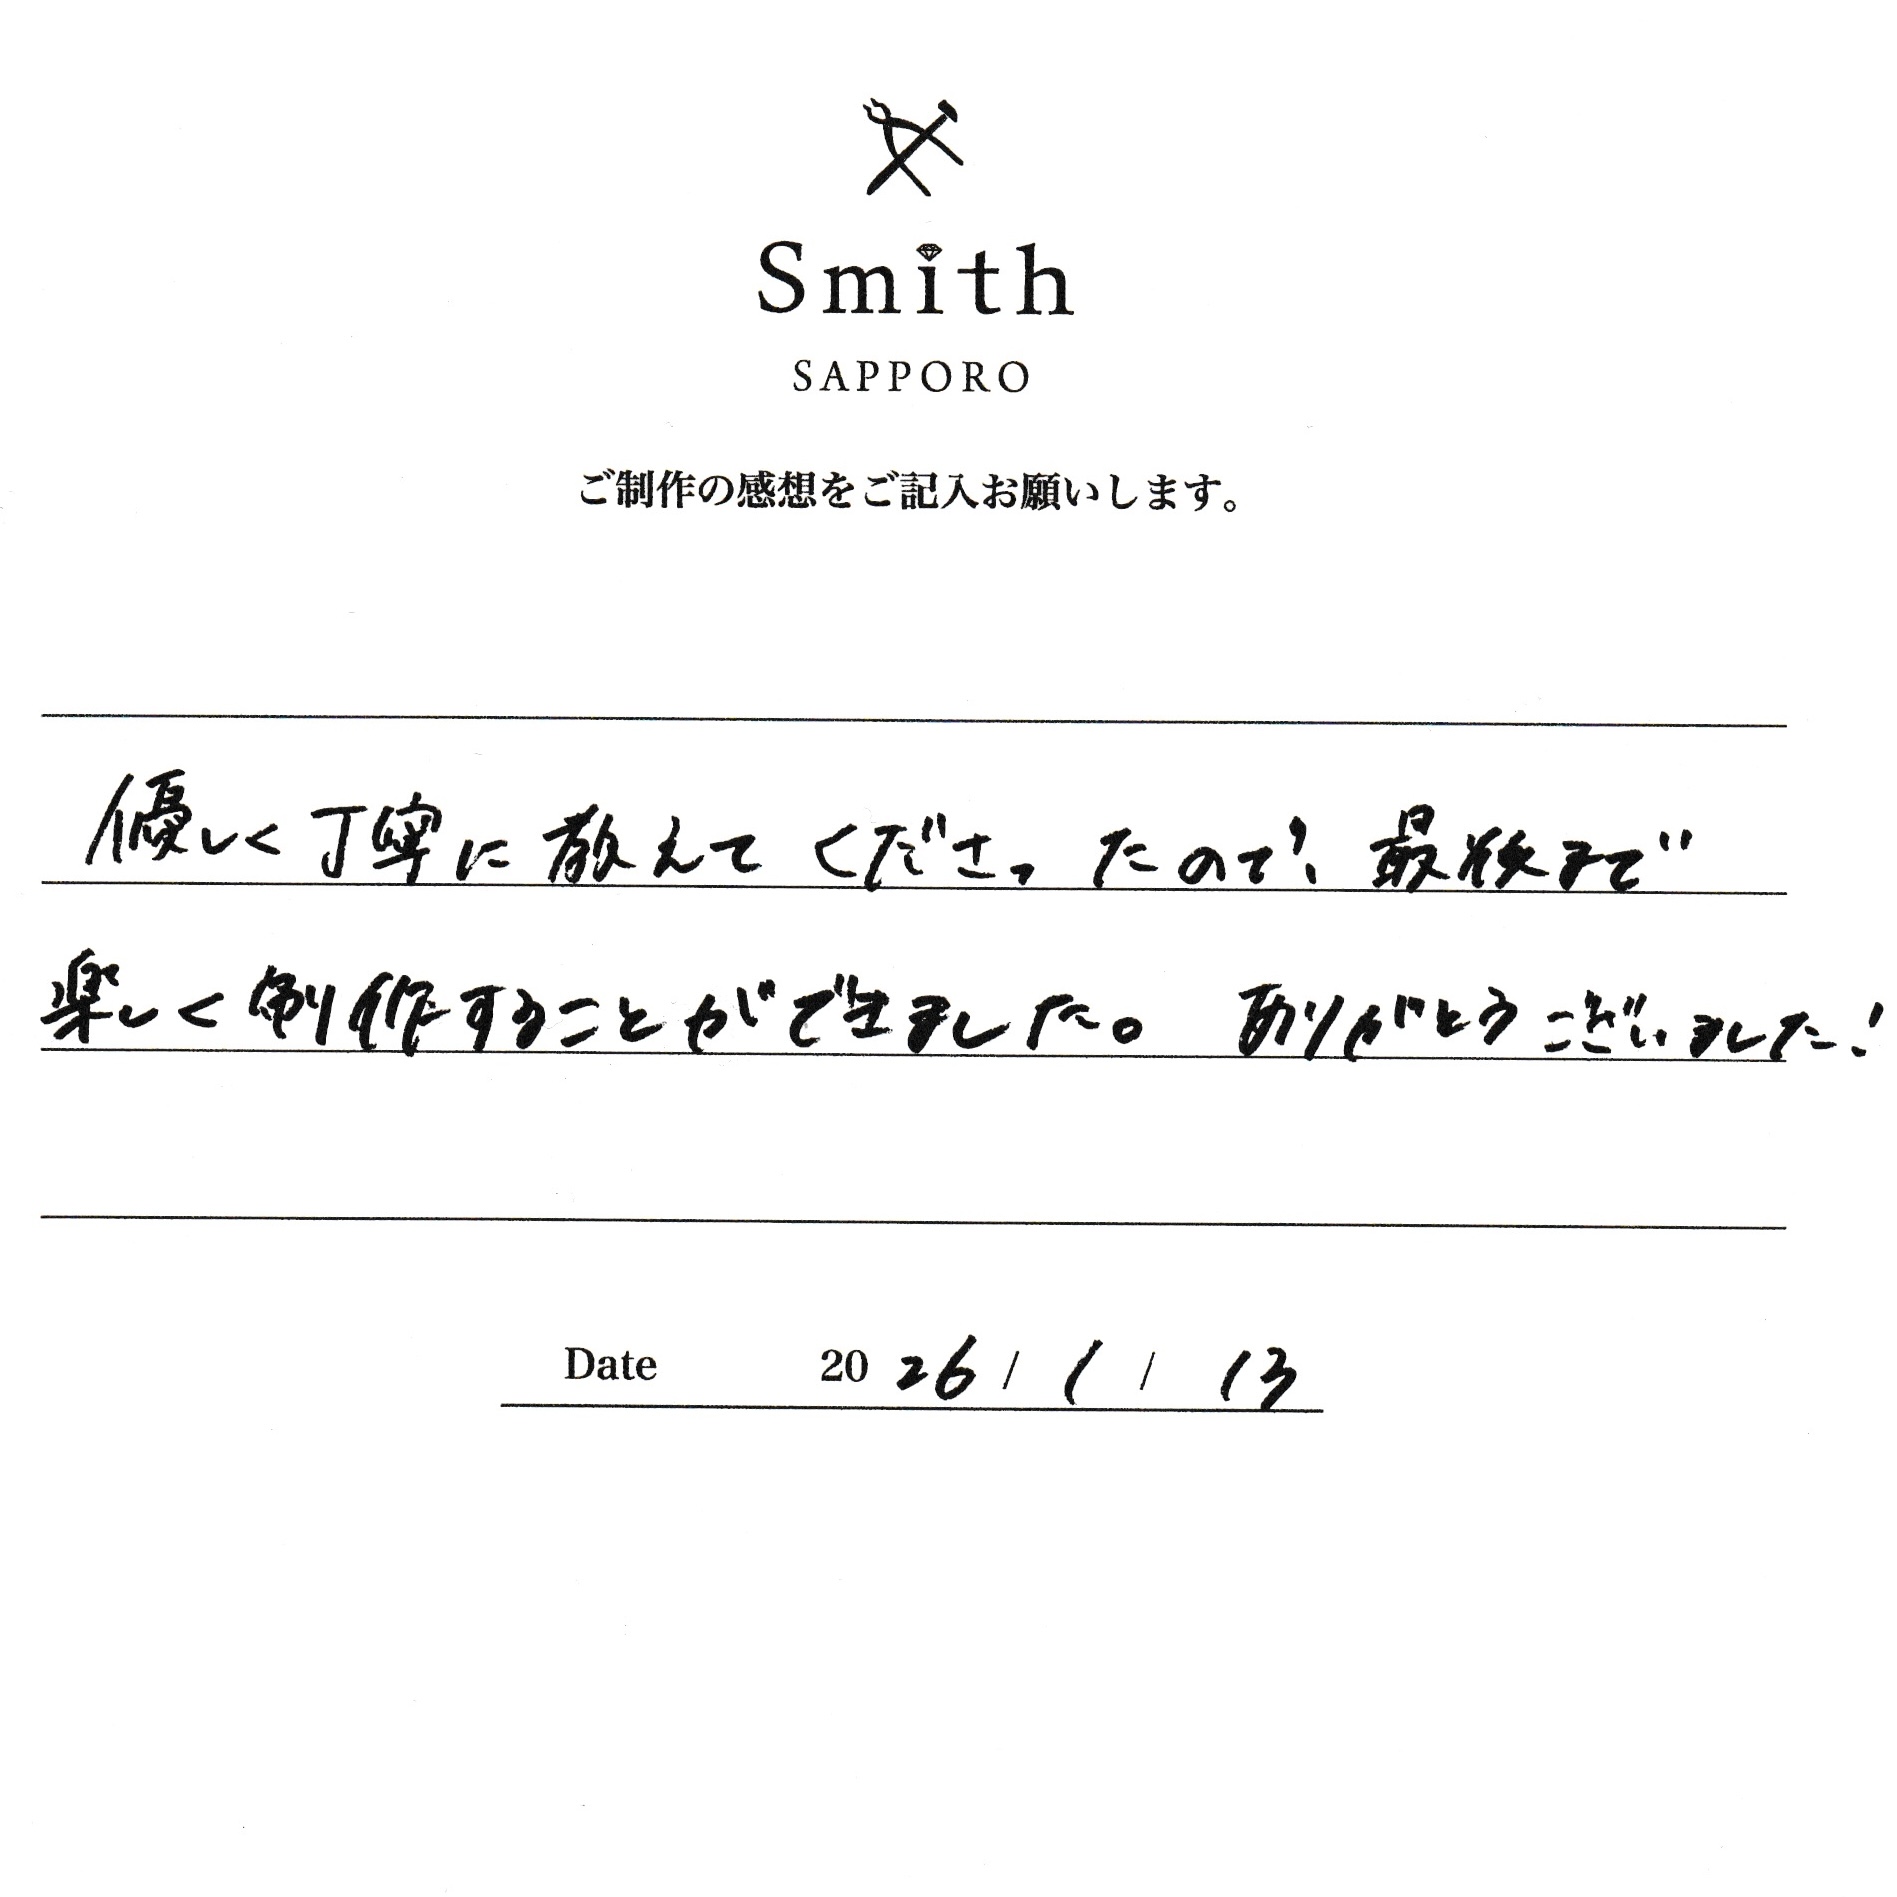 Smith
SAPPORO
ご制作の感想をご記入お願いします。
優しく丁寧に教えてくださったので、最後まで
楽しく制作することができました。ありがとうございました!
Date 2026/1/13